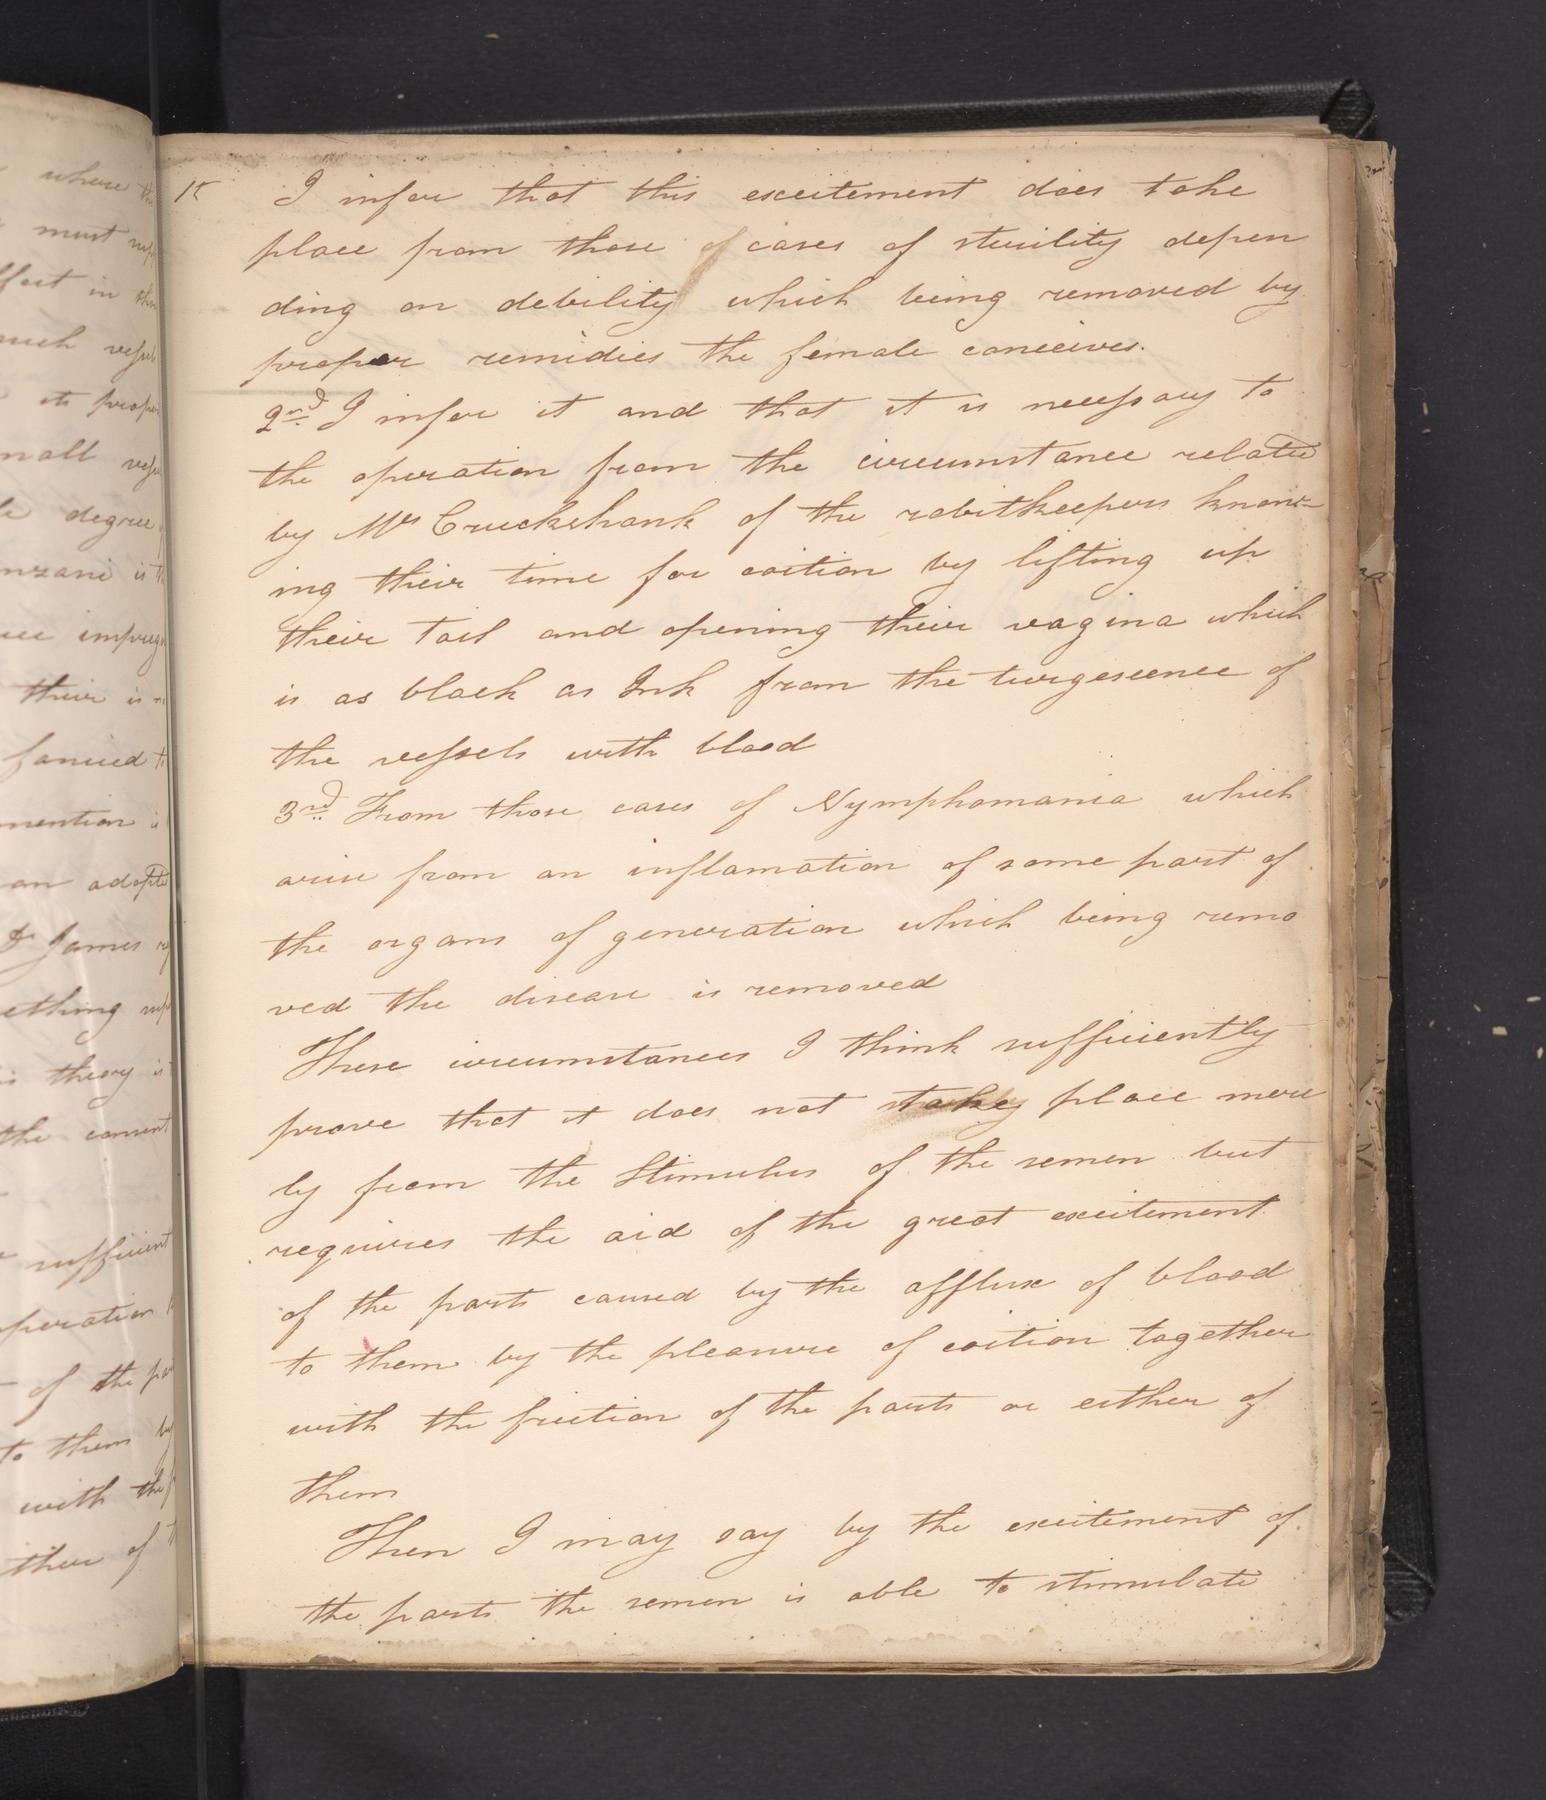 1st I infer that this exeitement does take
place from those of cases of sterility depen
ding on debility which being removed by
proper remidies the female conceives.
2nd. I infer it and that it is necessary to
the operation from the circumstance related
by Mr Cruckshank of the rabitkeepers know-
ing their time for coition by lifting up
their tail and opening their vagina which
is as black as Ink from the turgescence of
the vessels with blood
3rd. From those cases of Nymphomania which
arise from an inflamation of some part of
the organs of generation which being remo
ved the disease is removed
These circumstances I think sufficiently
prove that it does not take place mere
ly from the Stimulus of the semen but
requires the aid of the great exeitement
of the parts caused by the afflux of blood
to them by the pleasure of coition together
with the friction of the parts or either of
them
Then I may say by the exeitement of
the parts the semen is able to stimulate
where
must
effect in
such
its proper
small
degree
is
impreg
their is
fancied
mention
an adopted
Dr James
theory is
the
sufficient
operation
of the
to them by
with the
either of